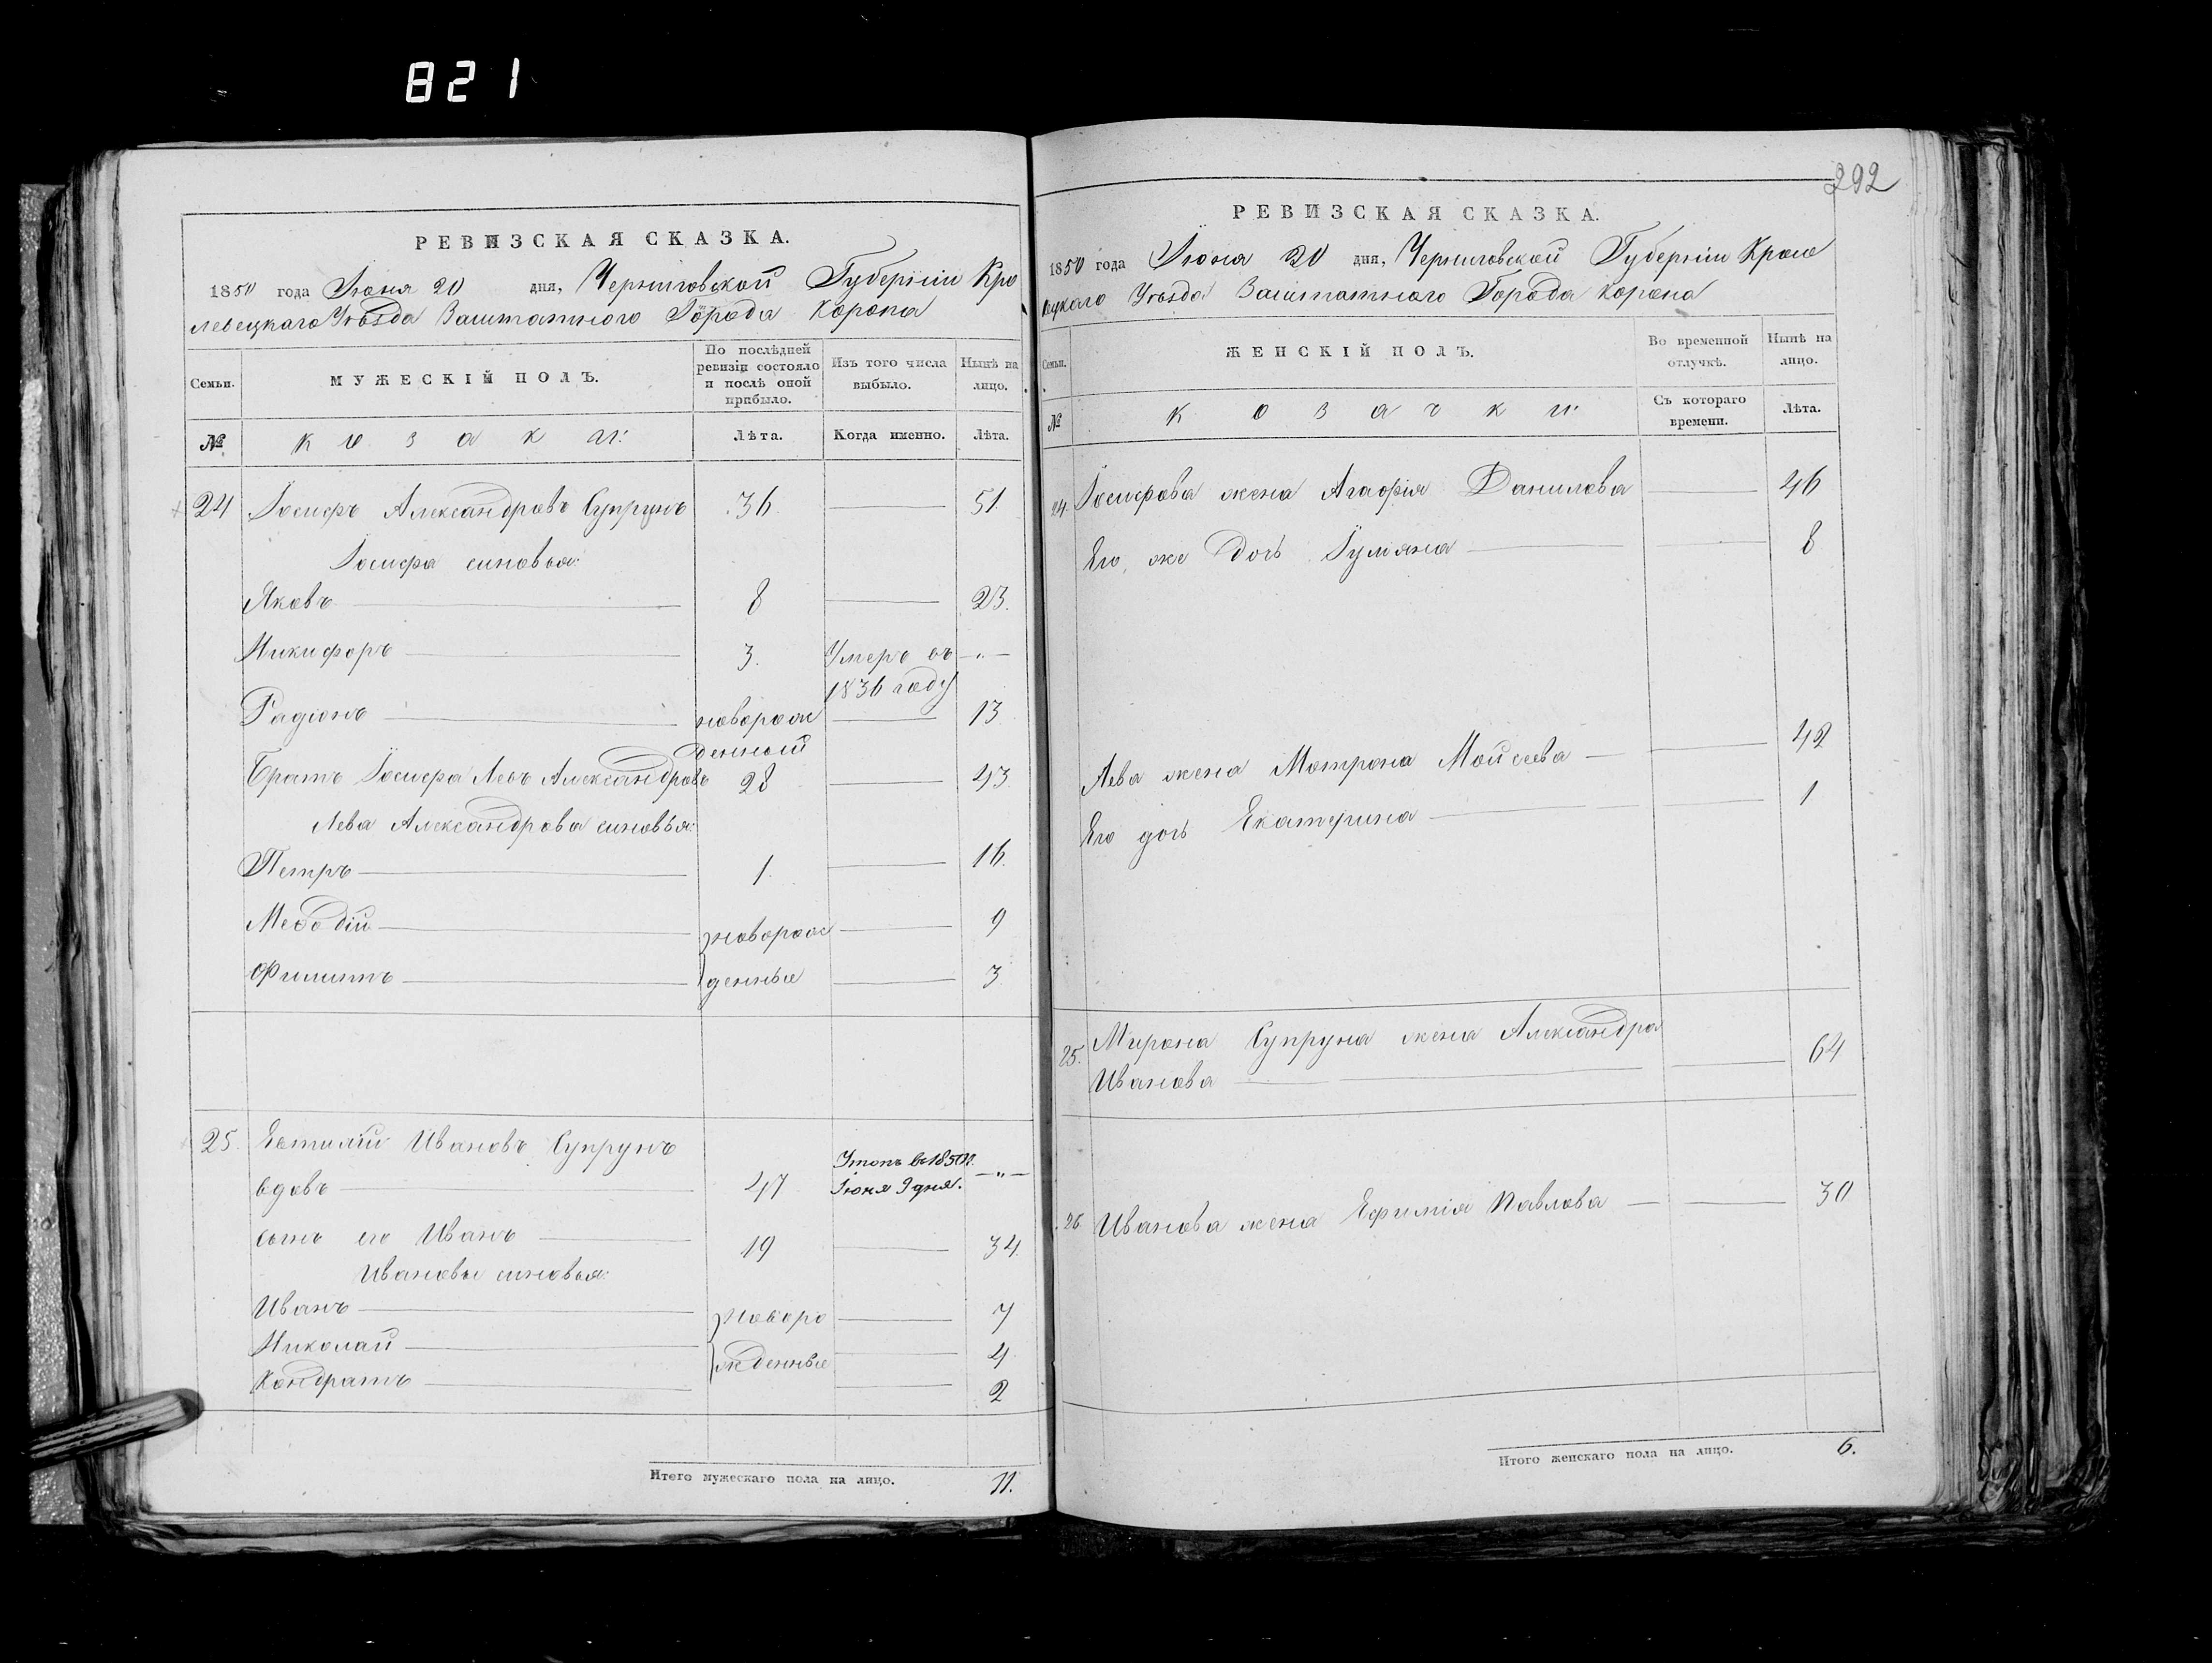 821
РЕВИЗСКАЯ СКАЗКА.
1850 года Іюня 20 дня, Черниговской Губерніи Кро
левецкаго Уѣзда Заштатного Города Коропа
Семьи.
МУЖЕСКІЙ ПОЛЪ.
По послѣдней ревизіи состояло и послѣ оной прибыло.
Изъ того числа выбыло.
Нынѣ на лицо.
№
козаки:
Лѣта.
Когда именно.
Лѣта.
24 Іосифъ Александровъ Супрунъ 36. 51.
Іосифа синовья:
Яковъ 8 23.
Никифоръ 3. Умеръ въ —"—
1836 году
Радіонъ новорож 13
денный
Братъ Іосифа Левъ Александровъ 28 43
Лева Александрова синовья:
Петръ 1. 16.
Меѳодій новорож 9
Филиппъ денные 3
25. Евтихій Ивановъ Супрунъ Утопъ въ 1850 г.
вдовъ 47 Іюня 9 дня. —"—
сынъ его Иванъ 19 34.
Ивановы синовья:
Иванъ новоро 7
Николай жденные 4
Кондратъ 2
Итого мужескаго пола на лицо. 11.
292
РЕВИЗСКАЯ СКАЗКА.
1850 года Іюня 20 дня, Черниговской Губерніи Кроле
вецкаго Уѣзда Заштатного Города Коропа
Семьи.
ЖЕНСКІЙ ПОЛЪ.
Во временной отлучкѣ.
Нынѣ на лицо.
№
козачки:
Съ котораго времени.
Лѣта.
24. Іосифова жена Агафія Данилова 46
Его, же дочь Іулияна 8
Лева жена Мотрона Мойсеева 42
Его дочь Екатерина 1
25. Мирона Супруна жена Александра
Иванова 64
26 Иванова жена Ефимія Павлова 30
Итого женскаго пола на лицо. 6.